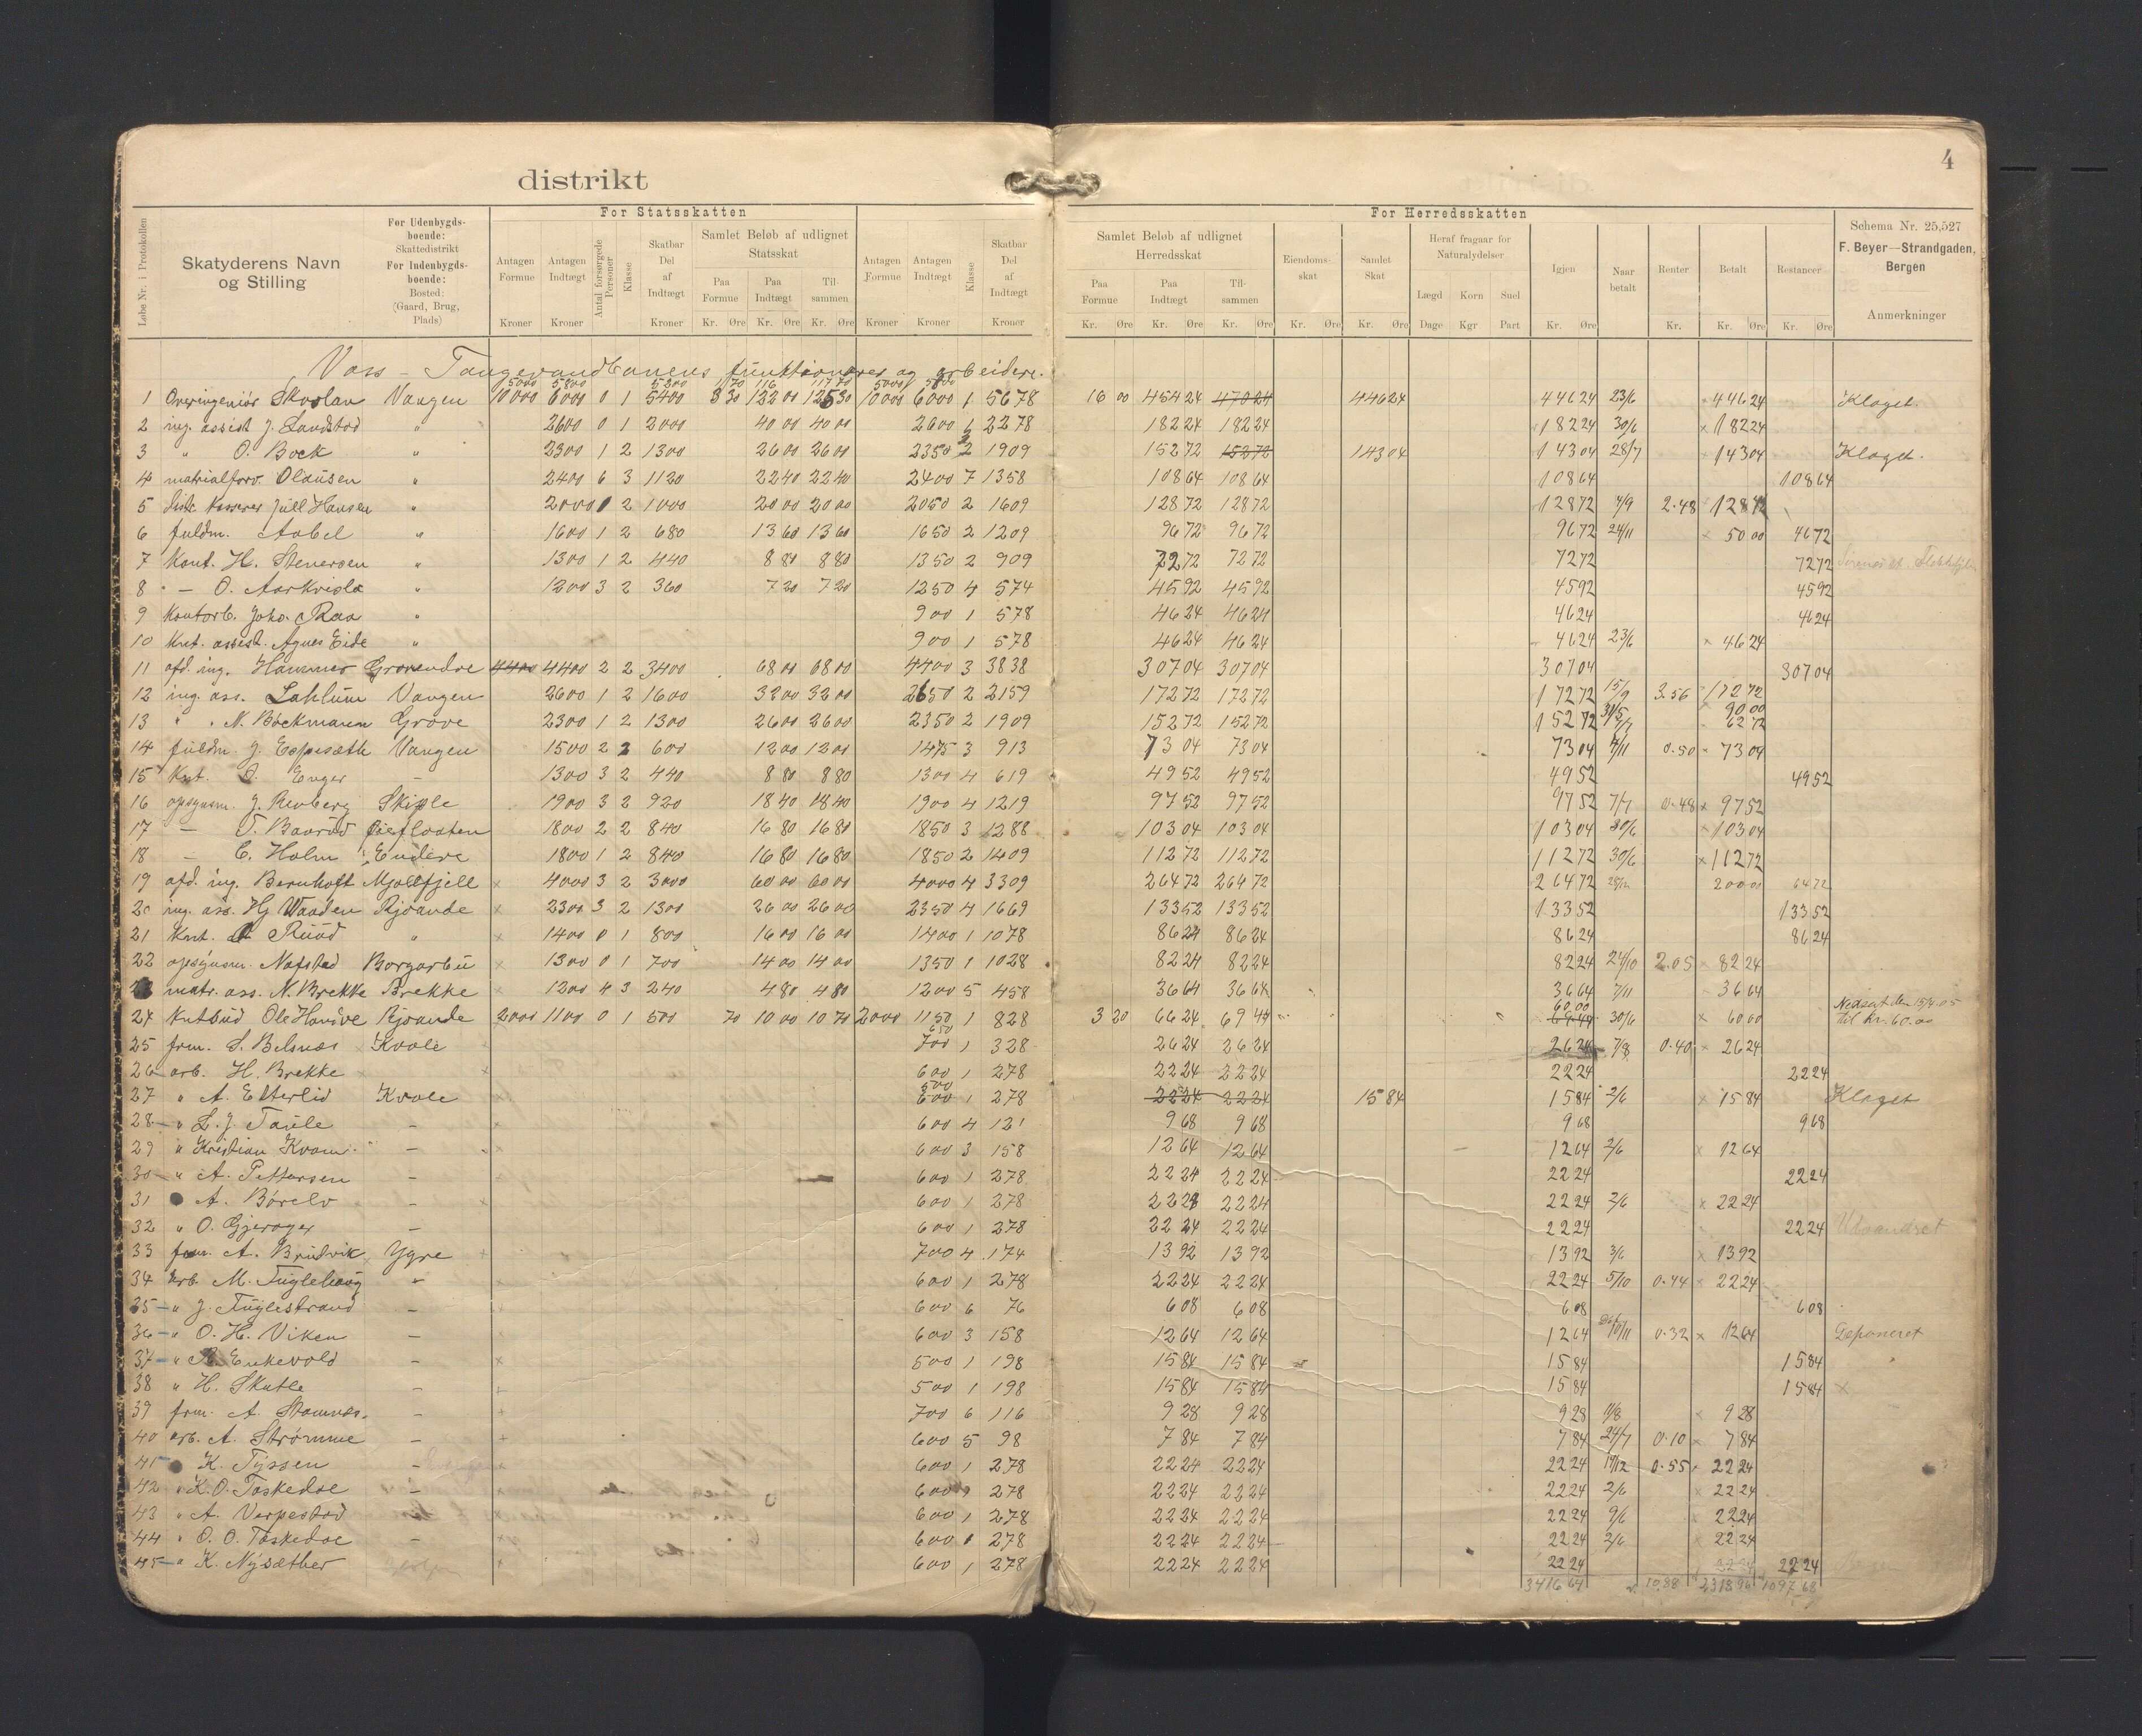 4
distrikt
Løbe Nr. i Protokollen
Skatyderens Navn og Stilling
For Udenbygds-boende: Skattedistrikt
For Indenbygds-boende: Bosted: (Gaard, Brug, Plads)
For Statsskatten
Antagen Formue Kroner
Antagen Indtægt Kroner
Antal forsørgede Personer
Klasse
Skatbar Del af Indtægt Kroner
Samlet Beløb af udlignet Statsskat
Paa Formue Kr. Øre
Paa Indtægt Kr. Øre
Tilsammen Kr. Øre
Antagen Formue Kroner
Antagen Indtægt Kroner
Klasse
Skatbar Del af Indtægt Kroner
For Herredsskatten
Samlet Beløb af udlignet Herredsskat
Paa Formue Kr. Øre
Paa Indtægt Kr. Øre
Tilsammen Kr. Øre
Eiendomsskat Kr. Øre
Samlet Skat Kr. Øre
Heraf fragaar for Naturalydelser
Lægd Dage
Korn Kgr
Suel Part
Igjen Kr. Øre
Naar betalt
Renter Kr.
Betalt Kr. Øre
Restancer Kr. Øre
Schema Nr. 25,527
F. Beyer—Strandgaden, Bergen
Anmerkninger
Voss - Taugevandbanens funktionærer og arbeidere.
5000 5800 5200 1 70 116 117 70 5000 5800
1 Overingeniør Skavlan Vangen 10000 6000 0 1 5400 3 30 122 00 125 30 10000 6000 1 5678 16 00 454 24 470 24 446 24 446 24 23/6 446 24 Klaget.
2 ing. assist J. Sandstad " 2600 0 1 2000 40 00 40 00 2600 1 2278 182 24 182 24 182 24 30/6 × 182 24
3 " O. Bock " 2300 1 2 1300 26 00 26 00 2350 2 1909 152 72 152 72 143 04 143 04 28/7 143 04 Klaget.
4 matrialforv. Olausen " 2400 6 3 1120 22 40 22 40 2400 7 1358 108 64 108 64 108 64 108 64
5 Distr. kasserer Jull Hansen " 2000 1 2 1000 20 00 20 00 2050 2 1609 128 72 128 72 128 72 4/9 2.48 128 72
6 fuldm. Aabel " 1600 1 2 680 13 60 13 60 1650 2 1209 96 72 96 72 96 72 24/11 × 50 00 46 72
7 Kont. H. Stenersen " 1300 1 2 440 8 80 8 80 1350 2 909 72 72 72 72 72 72 72 72
8 — O. Aarkvisla " 1200 3 2 360 7 20 7 20 1250 4 574 45 92 45 92 45 92 45 92
9 Kontorb. Johs. Raa " 900 1 578 46 24 46 24 46 24 46 24
10 Knt. assist. Agnes Eide " 900 1 578 46 24 46 24 46 24 23/6 × 46 24
11 afd. ing. Hammer Gravendre 4400 4400 2 2 3400 68 00 68 00 4400 3 3838 307 04 307 04 307 04 307 04
12 ing. ass. Lahlum Vangen 2600 1 2 1600 32 00 32 00 2650 2 2159 172 72 172 72 172 72 15/9 3.56 172 72
13 " " N. Böckmann Grove 2300 1 2 1300 26 00 26 00 2350 2 1909 152 72 152 72 152 72 31/5 7/7 90 00 62 72
14 fuldm. J. Espesæth Vangen 1500 2 2 600 12 00 12 00 1475 3 913 73 04 73 04 73 04 4/11 0.50 73 04
15 Knt. O. Enger — 1300 3 2 440 8 80 8 80 1300 4 619 49 52 49 52 49 52 49 52
16 opsynsm. J. Renberg Skiple 1900 3 2 920 18 40 18 40 1900 4 1219 97 52 97 52 97 52 7/7 0.48 × 97 52
17 — T. Baarud 1800 2 2 840 16 80 16 80 1850 3 1288 103 04 103 04 103 04 30/6 × 103 04
18 — C. Holm Endere 1800 1 2 840 16 80 16 80 1850 2 1409 112 72 112 72 112 72 30/6 × 112 72
19 afd. ing. Bernhoft Mjølfjell × 4000 3 2 3000 60 00 60 00 4000 4 3309 264 72 264 72 264 72 28/12 200 00 64 72
20 ing. ass. Hj Waaden Rjoande × 2300 3 2 1300 26 00 26 00 2350 4 1669 133 52 133 52 133 52 133 52
21 Knt. Ruud " × 1400 0 1 800 16 00 16 00 1400 1 1078 86 24 86 24 86 24 86 24
22 opsynsm. Nafstad Borgarbu × 1300 0 1 700 14 00 14 00 1350 1 1028 82 24 82 24 82 24 24/10 2.05 × 82 24
matr. ass. N. Brekke Brekke × 1200 4 3 240 4 80 4 80 1200 5 458 36 64 36 64 36 64 7/11 36 64
24 Kntbud Ole Handve Rjoande 2000 1100 0 1 500 70 10 00 10 70 2000 1150 1 828 3 20 66 24 69 44 60 00 69 44 30/6 × 60 00 Nedsat den 15/9 05 til kr. 60.00
25 frm. S. Belsnæs Kvale 650 700 1 328 26 24 26 24 26 24 7/8 0.40 26 24
26 arb. H. Brekke × 600 1 278 22 24 22 24 22 24 22 24
27 " A. Etterlid Kvale 500 600 1 278 22 24 22 24 15 84 15 84 2/6 × 15 84 Klaget
28 " L. J. Taule — × 600 4 121 9 68 9 68 9 68 9 68
29 " Kristian Kvam — × 600 3 158 12 64 12 64 12 64 2/6 × 12 64
30 " A. Pettersen — 600 1 278 22 24 22 24 22 24 22 24
31 A. Børelv — × 600 1 278 22 24 22 24 22 24 2/6 × 22 24
32 " O. Gjerager — 600 1 278 22 24 22 24 22 24 22 24 Udvandret
33 frm. A. Brudvik Ygre 700 4 174 13 92 13 92 13 92 3/6 × 13 92
34 arb. M. Fuglehaug — × 600 1 278 22 24 22 24 22 24 5/10 0.44 × 22 24
35 " J. Fuglestrand — 600 6 76 6 08 6 08 6 08 6 08
36 " O. H. Viken — 600 3 158 12 64 12 64 12 64 10/11 0.32 × 12 64 Deponeret
37 " Enkevold — × 500 1 198 15 84 15 84 15 84 15 84
38 " H. Skutle — 500 1 198 15 84 15 84 15 84 15 84 ×
39 frm. A. Stamnes — + 700 6 116 9 28 9 28 9 28 1/8 × 9 28
40 arb. A. Strømme — + 600 5 98 7 84 7 84 7 84 24/7 0.10 × 7 84
41 K. Tyssen — + 600 1 278 22 24 22 24 22 24 19/12 0.55 22 24
42 " K. O. Taskedse — 600 1 278 22 24 22 24 22 24 2/6 × 22 24
43 " A. Verpestad — 600 1 278 22 24 22 24 22 24 9/6 × 22 24
44 " O. O. Taskedse — × 600 278 22 24 22 24 22 24 2/6 × 22 24
45 " K. Nysæther + 600 1 278 22 24 22 24 22 24 22 24 22 24
3416 64 10.88 2318 96 1097 68